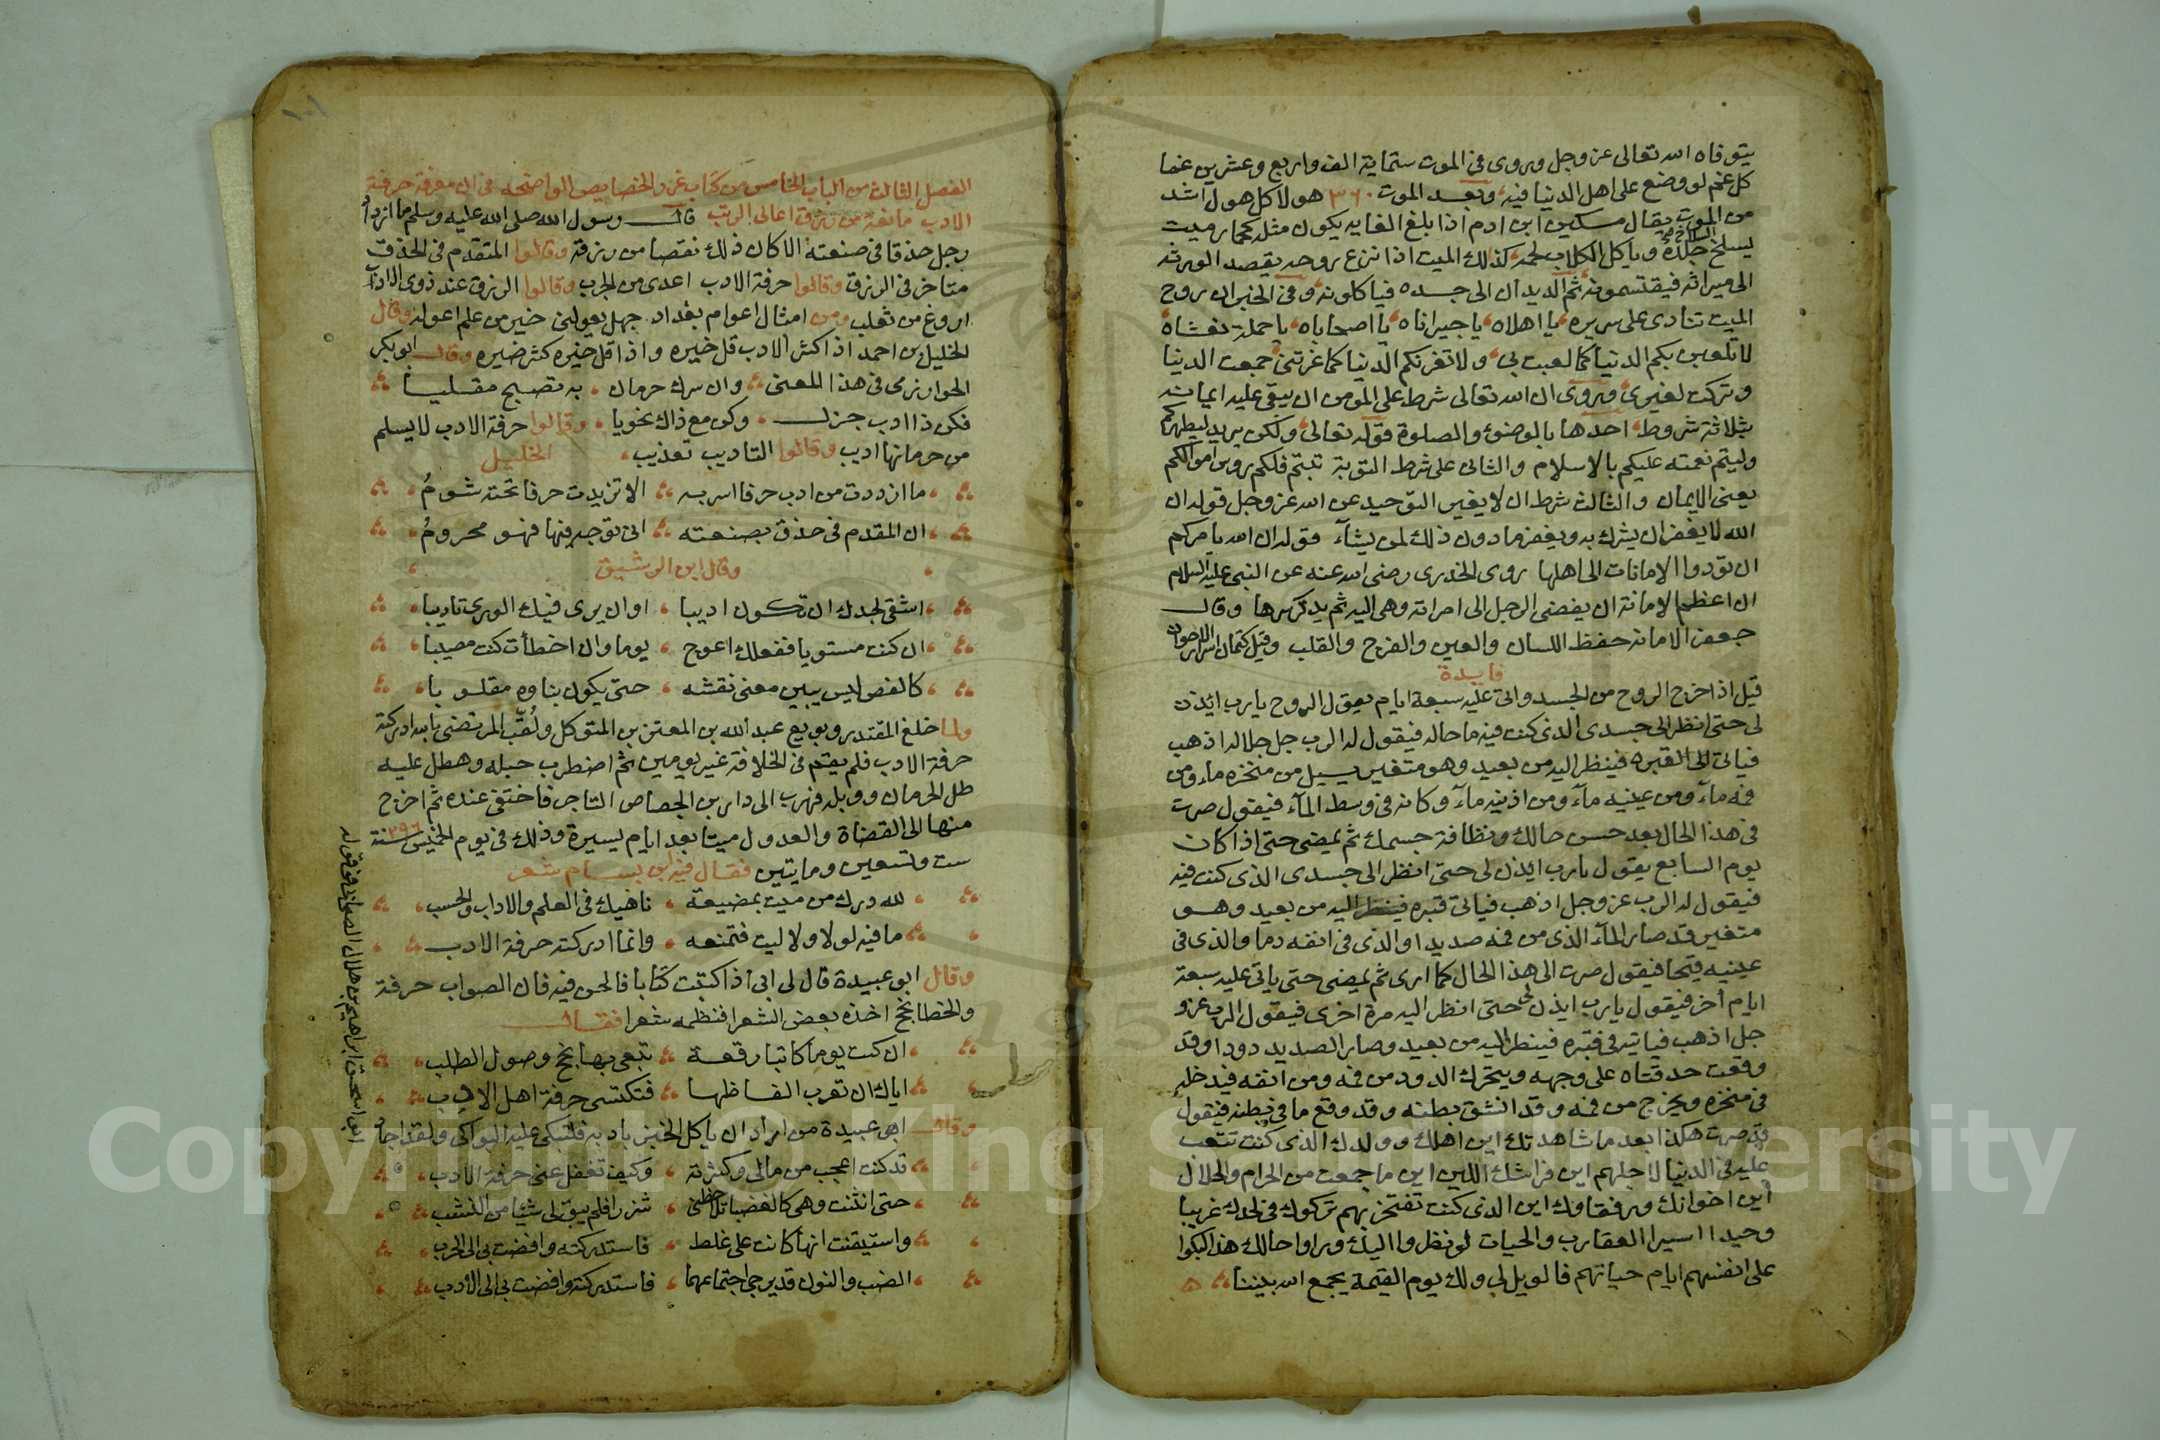 يتوفاه الله تعالى عز وجل ويروى في الموت ستماية الف واربع وعشرين غما
كل غم لو وضع على اهل الدنيا فيه وبعد الموت ٣٦٠ هولا كل هول اشد
من الموت يقال مسكين ابن ادم اذا بلغ الغايه يكون مثله كحمار ميت
يسلخ السلاخ جلده وياكل الكلاب لحمه كذلك الميت اذا نزع روحه يقصد الورثه
الى ميراثه فيقتسمونه ثم الديدان الى جسده فياكلونه وفي الخبر ان روح
الميت تنادى على سريره يا اهلاه يا جيراناه يا اصحاباه يا حملة نعشاه
لا تلعبن بكم الدنيا كما لعبت بي ولا تغرنكم الدنيا كما غرتني جمعت الدنيا
وتركت لغيرى ويروى ان الله تعالى شرط على المومن ان يبقى عليه ايمانه
بثلاثة شروط احدها بالوضوء والصلوة قوله تعالى ولكن يريد ليطهركم
وليتم نعمته عليكم بالاسلام والثاني على شرط التوبة تبتم فلكم روس اموالكم
يعنى الايمان والثالث شرط ان لا يغير التوحيد عن الله عز وجل قوله ان
الله لا يغفر ان يشرك به ويغفر ما دون ذلك لمن يشآء قوله ان الله يامركم
ان تودوا الامانات الى اهلها روى الخدرى رضى الله عنه عن النبى عليه السلام
ان اعظم الامانة ان يفضى الرجل الى امراته وهى اليه ثم يذكر سرها وقال
جعفر الامانه حفظ اللسان والعين والفرج والقلب وقيل كتمان اسرار الاخوان
فايدة
قيل اذا خرج الروح من الجسد واتى عليه سبعة ايام يقول الروح يا رب ايذن
لى حتى انظر الى جسدى الذى كنت فيه ما حاله فيقول له الرب جل جلاله اذهب
فياتى الى القبر فينظر اليه من بعيد وهو متغير يسيل من منخره ماء ومن
فمه مآء ومن عينيه مآء ومن اذنيه مآء وكانه في وسط المآء فيقول صرت
في هذا الحال بعد حسن حالك ونظافة جسمك ثم يمضى حتى اذا كان
يوم السابع يقول يا رب ايذن لى حتى انظر الى جسدى الذى كنت فيه
فيقول له الرب عز وجل اذهب فياتى قبره فينظر اليه من بعيد وهو
متغير قد صار المآء الذى من فمه صديدا والذى في انفه دما والذى في
عينيه قيحا فيقول صرت الى هذا الحال كما ارى ثم يمضى حتى ياتى عليه سبعة
ايام أخر فيقول يا رب ايذن لى حتى انظر اليه مرة اخرى فيقول الرب عز و
جل اذهب فياتيه في قبره فينظر اليه من بعيد وصار الصديد دودا وقد
وقعت حدقتاه على وجهه ويتحرك الدود من فمه ومن انفه فيدخل
في منخره ويخرج من فمه وقد انشق بطنه وقد وقع ما في بطنه فيقول
قد صرت هكذا بعد ما شاهدتك اين اهلك وولدك الذى كنت تتعب
عليه في الدنيا لاجلهم اين فراشك اللين اين ما جمعت من الحرام والحلال
أين اخوانك ورفقاوك اين الذى كنت تفتخر بهم تركوك في لحدك غريبا
وحيدا اسيرا العقارب والحيات لو نظروا اليك وراوا حالك هذا لبكوا
على انفسهم ايام حياتهم فالويل لى ولك يوم القيمة يجمع الله بيننا
١٠١
الفصل الثالث من الباب الخامس من كتاب غرر الخصايص الواضحه في ان معرفة حرفة
الادب مانعة من ترقي اعالى الرتب قال رسول الله صلى الله عليه وسلم ما ازداد
رجل حذقا في صنعته الا كان ذلك نقصا من رزقه وقالوا المتقدم في الحذق
متاخر في الرزق وقالوا حرفة الادب اعدى من الجرب وقالوا الرزق عند ذوى الاداب
اروغ من ثعلب ومن امثال اعوام بغداد جهل يعولنى خير من علم اعوله وقال
الخليل بن احمد اذا كثر الادب قل خيره واذا قل خيره كثر ضيره وقال ابو بكر
الخوارزمى في هذا المعنى وان سرك حرمان به تصبح مقليا
فكن ذا ادب جزل وكن مع ذاك نحويا وقالوا حرفة الادب لا يسلم
من حرمانها اديب وقالوا التاديب تعذيب الخليل
ما ازددت من ادب حرفا اسر به الا تزيدت حرفا تحته شوم
ان المقدم في حذق بصنعته انى توجه فيها فهو محروم
وقال ابن الرشيق
اشقى لجدك ان تكون اديبا او ان يرى فيك الورى تاديبا
ان كنت مستويا ففعلك اعوج يوما وان اخطأت كنت مصيبا
كالفص ليس يبين معنى نقشه حتى يكون بناوه مقلوبا
ولما خلع المقتدر وبويع عبد الله بن المعتز بن المتوكل ولقب المرتضى بالله ادركته
حرفة الادب فلم يقم في الخلافة غير يومين ثم اضطرب حبله وهطل عليه
طل الحرمان ووبله فهرب الى دار بن الجصاص التاجر فاختفى عنده ثم اخرج
منها الى القضاة والعدول ميتا بعد ايام يسيرة وذلك في يوم الخميس سنة ٢٩٦
ست وتسعين ومايتين فقال فيه ابن بسام شعر
لله درك من ميت بمضيعة ناهيك في العلم والاداب والحسب
ما فيه لو لا ولا ليت فتمنعه وانما ادركته حرفة الادب
وقال ابو عبيدة قال لى ابى اذا كتبت كتابا فالحن فيه فان الصواب حرفة
والخطا نجح اخذه بعض الشعرا فنظمه شعرا فقال
ان كنت يوما كاتبا رقعة تبغى بها نجح وصول الطلب
اياك ان تعرب الفاظها فتكتسى حرفة اهل الادب
وقال ابو عبيدة من اراد ان ياكل الخبز بادبه فلتبكى عليه البواكى ولقد اجاد
قد كنت اعجب من مالى وكثرته وكيف تغفل عنى حرفة الادب
حتى انثنت وهى كالغضبا تلاحظنى شزرا فلم يبق لى شيا من النشب
واستيقنت انها كانت على غلط فاستدركته وافضت بى الى الحرب
الضب والنون قد يرجى اجتماعهما فاستدركته وافضت بى الى الأدب
ابو اسحق ابراهيم بن هلال الصابى في قوله
Copyright © King Saud University